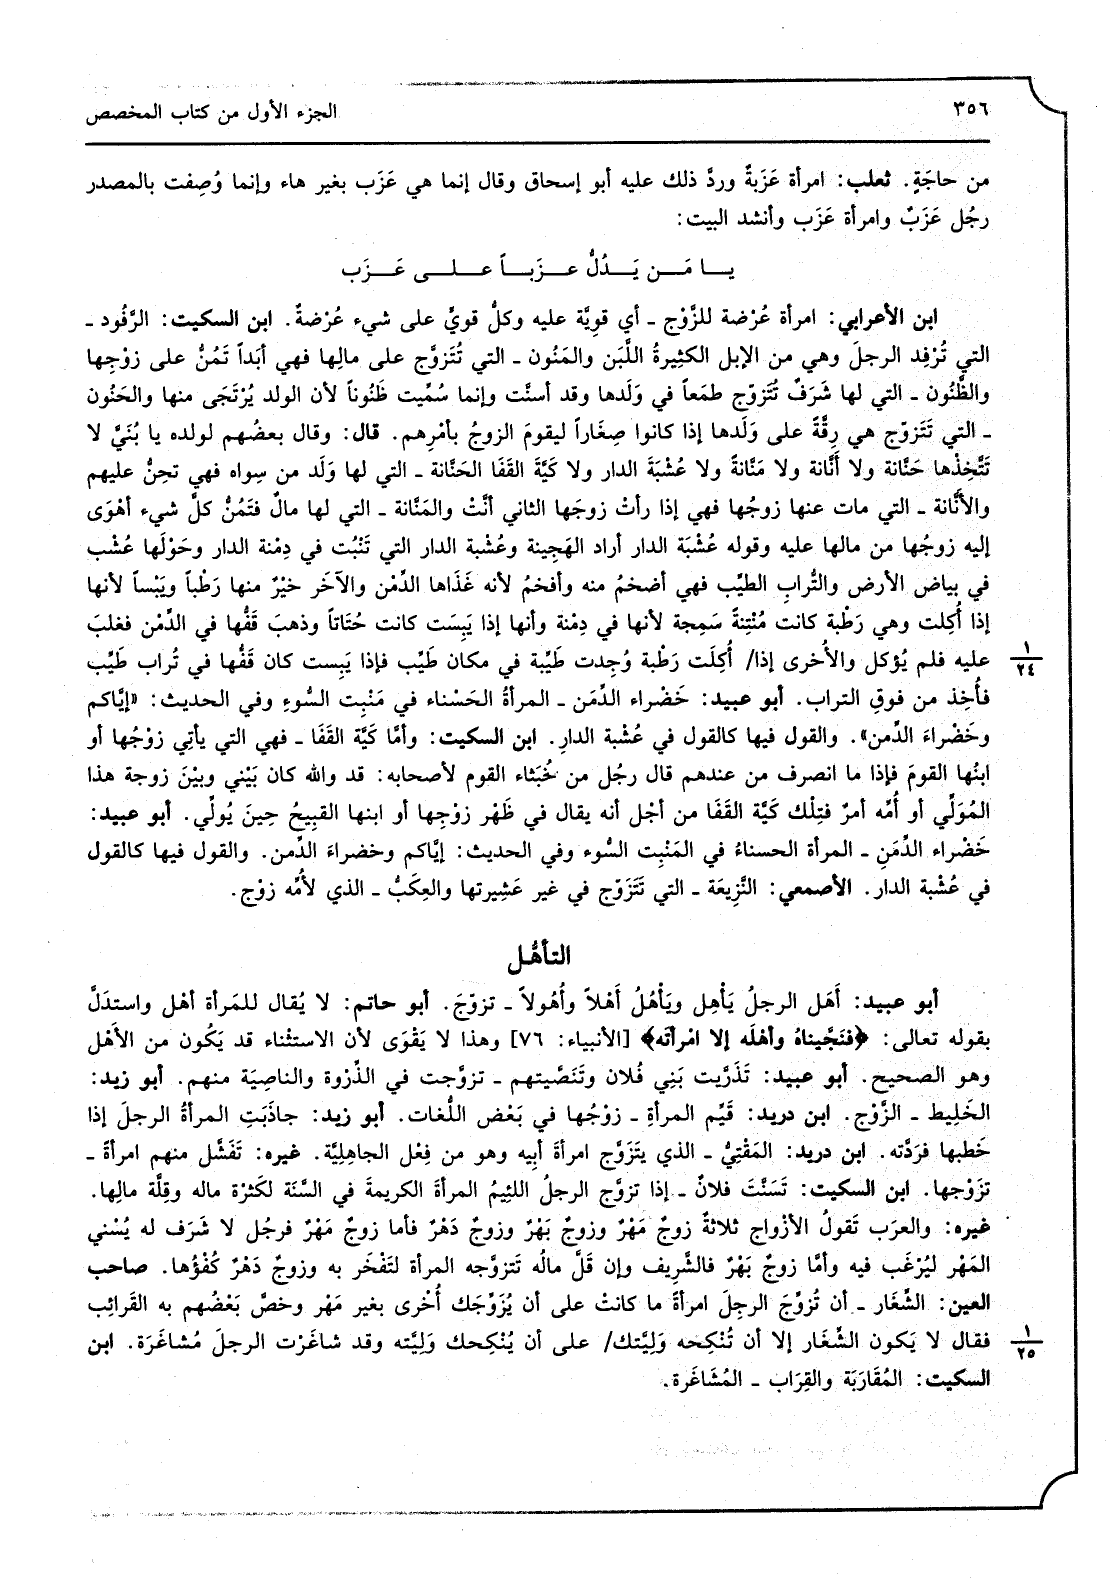 ٣٥٦ الجزء الأول من كتاب المخصص
من حاجَةٍ. ثعلب: امرأة عَزَبةٌ وردَّ ذلك عليه أبو إسحاق وقال إنما هي عَزَب بغير هاء وإنما وُصِفت بالمصدر
رجُل عَزَبٌ وامرأة عَزَب وأنشد البيت:
يـا مَـن يَـدُلُّ عـزَبـاً عـلـى عَـزَب
ابن الأعرابي: امرأة عُرْضة للزَّوْج ـ أي قوِيَّة عليه وكلُّ قويٍّ على شيء عُرْضةٌ. ابن السكيت: الرَّفُود ـ
التي تُرْفِد الرجلَ وهي من الإبل الكثِيرةُ اللَّبَن والمَنُون ـ التي تُتَزوَّج على مالِها فهي أبَداً تَمُنُّ على زوْجِها
والظَّنُون ـ التي لها شَرَفٌ تُتَزوّج طمَعاً في وَلَدها وقد أسنَّت وإنما سُمِّيت ظَنُوناً لأن الولد يُرْتَجَى منها والحَنُون
ـ التي تَتَزوّج هي رِقَّةً على وَلَدها إذا كانوا صِغَاراً ليقومَ الزوجُ بأمْرِهم. قال: وقال بعضُهم لولده يا بُنَيَّ لا
تَتَّخِذْها حَنَّانة ولا أَنَّانة ولا مَنَّانةً ولا عُشْبَةَ الدار ولا كَيَّةَ القَفَا الحَنَّانة ـ التي لها وَلَد من سِواه فهي تحِنُّ عليهم
والأَنَّانة ـ التي مات عنها زوجُها فهي إذا رأتْ زوجَها الثاني أنَّتْ والمَنَّانة ـ التي لها مالٌ فتَمُنُّ كلَّ شيء أهْوَى
إليه زوجُها من مالها عليه وقوله عُشْبَة الدار أراد الهَجِينة وعُشْبة الدار التي تَنْبُت في دِمْنة الدار وحَوْلَها عُشْب
في بياض الأرض والتُّرابِ الطيِّب فهي أضخمُ منه وأفخمُ لأنه غَذَاها الدِّمْن والآخَر خيْرٌ منها رَطْباً ويَبْساً لأنها
إذا أُكِلت وهي رَطْبة كانت مُنْتِنةً سَمِجة لأنها في دِمْنة وأنها إذا يَبِسَت كانت حُتَاتاً وذهبَ قَفُّها في الدِّمْن فغلبَ
عليه فلم يُؤكل والأُخرى إذا/ أُكِلَت رَطْبة وُجِدت طَيِّبة في مكان طَيِّب فإذا يَبِست كان قَفُّها في تُراب طَيِّب ١/٢٤
فأُخِذ من فوقِ التراب. أبو عبيد: خَضْراء الدِّمَن ـ المرأةُ الحَسْناء في مَنْبِت السُّوءِ وفي الحديث: «إيَّاكم
وخَضْراءَ الدِّمن». والقول فيها كالقول في عُشْبة الدارِ. ابن السكيت: وأمَّا كَيَّة القَفَا ـ فهي التي يأتِي زوْجُها أو
ابنُها القومَ فإذا ما انصرف من عندهم قال رجُل من خُبَثاء القوم لأصحابه: قد والله كان بَيْني وبيْنَ زوجة هذا
المُوَلِّي أو أُمِّه أمرٌ فتِلْك كَيَّة القَفَا من أجْل أنه يقال في ظَهْر زوْجِها أو ابنها القبِيحُ حِينَ يُولِّي. أبو عبيد:
خَضْراء الدِّمَنِ ـ المرأة الحسناءُ في المَنْبِت السُّوء وفي الحديث: إيَّاكم وخضراءَ الدِّمن. والقول فيها كالقول
في عُشْبة الدار. الأصمعي: النَّزِيعَة ـ التي تَتَزَوّج في غير عَشِيرتها والعِكَبُّ ـ الذي لأُمِّه زوْج.
التأهُّل
أبو عبيد: أَهَل الرجلُ يَأْهِل ويَأْهُلُ أَهْلاً وأُهُولاً ـ تزوّجَ. أبو حاتم: لا يُقال للمَرأة أهْل واستدَلَّ
بقوله تعالى: ﴿فنَجَّيناهُ وأهْلَه إلا امْرأتَه﴾ [الأنبياء: ٧٦] وهذا لا يَقْوَى لأن الاستثْناء قد يَكُون من الأَهْل
وهو الصحيح. أبو عبيد: تَذَرَّيت بَنِي فُلان وتَنَصَّيتهم ـ تزوَّجت في الذِّرْوة والناصِيَة منهم. أبو زيد:
الخَلِيط ـ الزَّوْج. ابن دريد: قَيِّم المرأةِ ـ زوْجُها في بَعْض اللُّغات. أبو زيد: جاذَبَتِ المرأةُ الرجلَ إذا
خَطبها فرَدَّته. ابن دريد: المَقْتِيُّ ـ الذي يتَزَوَّج امرأةَ أبِيه وهو من فِعْل الجاهِلِيَّة. غيره: تَفَشَّل منهم امرأةً ـ
تزَوْجها. ابن السكيت: تَسَنَّتَ فلانٌ ـ إذا تزوَّج الرجلُ اللئِيمُ المرأةَ الكريمةَ في السَّنَة لكَثرْة ماله وقِلَّة مالِها.
غيره: والعرَب تَقولُ الأزْواج ثلاثةٌ زوجُ مَهْرٌ وزوجُ بَهْرٌ وزوجُ دَهْرٌ فأما زوجٌ مَهْرٌ فرجُل لا شَرَف له يُسْني
المَهْر ليُرْغَب فيه وأمَّا زوجٌ بَهْرٌ فالشَّرِيف وإن قَلَّ مالُه تَتزوَّجه المرأة لتَفْخَر به وزوجٌ دَهْرٌ كُفْؤُها. صاحب
العين: الشِّغَار ـ أن تُزوّجَ الرجلَ امرأةً ما كانتْ على أن يُزَوِّجَك أُخْرى بغير مَهْر وخصَّ بَعْضُهم به القَرائِب
فقال لا يَكون الشِّغَار إلا أن تُنْكِحه وَلِيَّتك/ على أن يُنْكِحك وَلِيَّته وقد شاغَرْت الرجلَ مُشاغَرَة. ابن ١/٢٥
السكيت: المُقَارَبَة والقِرَاب ـ المُشَاغَرة.